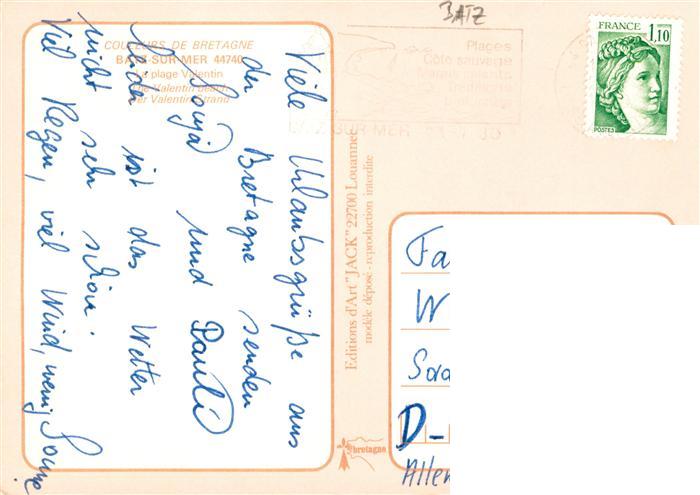 BATZ
COULEURS DE BRETAGNE
BATZ-SUR-MER 44740
La plage Valentin
The Valentin beach
Der Valentin Strand
Viele Urlaubsgrüße aus
der Bretagne senden
Sonja und Pauli
Leider ist das Wetter
nicht sehr schön.
Viel Regen, viel Wind, wenig Sonne.
Editions d'Art "JACK" 22700 Louannec
modèle déposé - reproduction interdite
bretagne
Plages
Côte sauvage
Marais salants
BATZ-SUR-MER
FRANCE
1,10
POSTES
Fa
W
D-
Allem